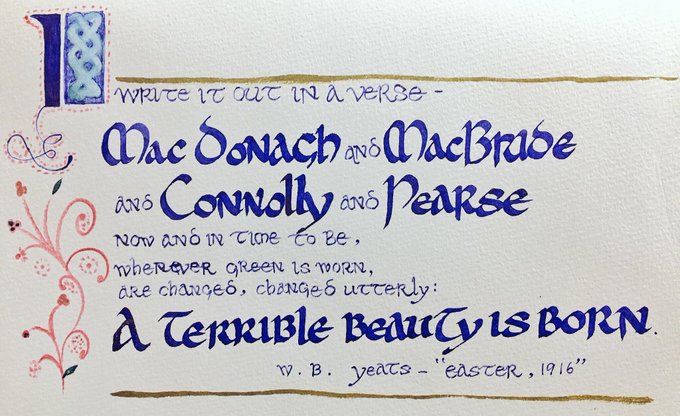 I write it out in a verse –
Mac Donagh and MacBride
and Connolly and Pearse
now and in time to be,
wherever green is worn,
are changed, changed utterly:
A Terrible Beauty is Born.
W. B. Yeats – "Easter, 1916"